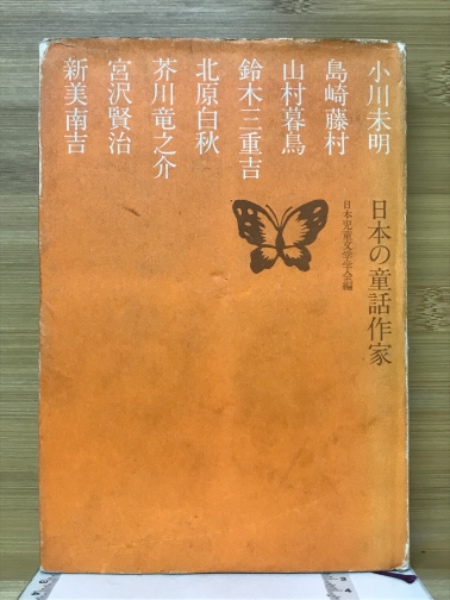 小川未明
島崎藤村
山村暮鳥
鈴木三重吉
北原白秋
芥川竜之介
宮沢賢治
新美南吉
日本の童話作家
日本児童文学学会編